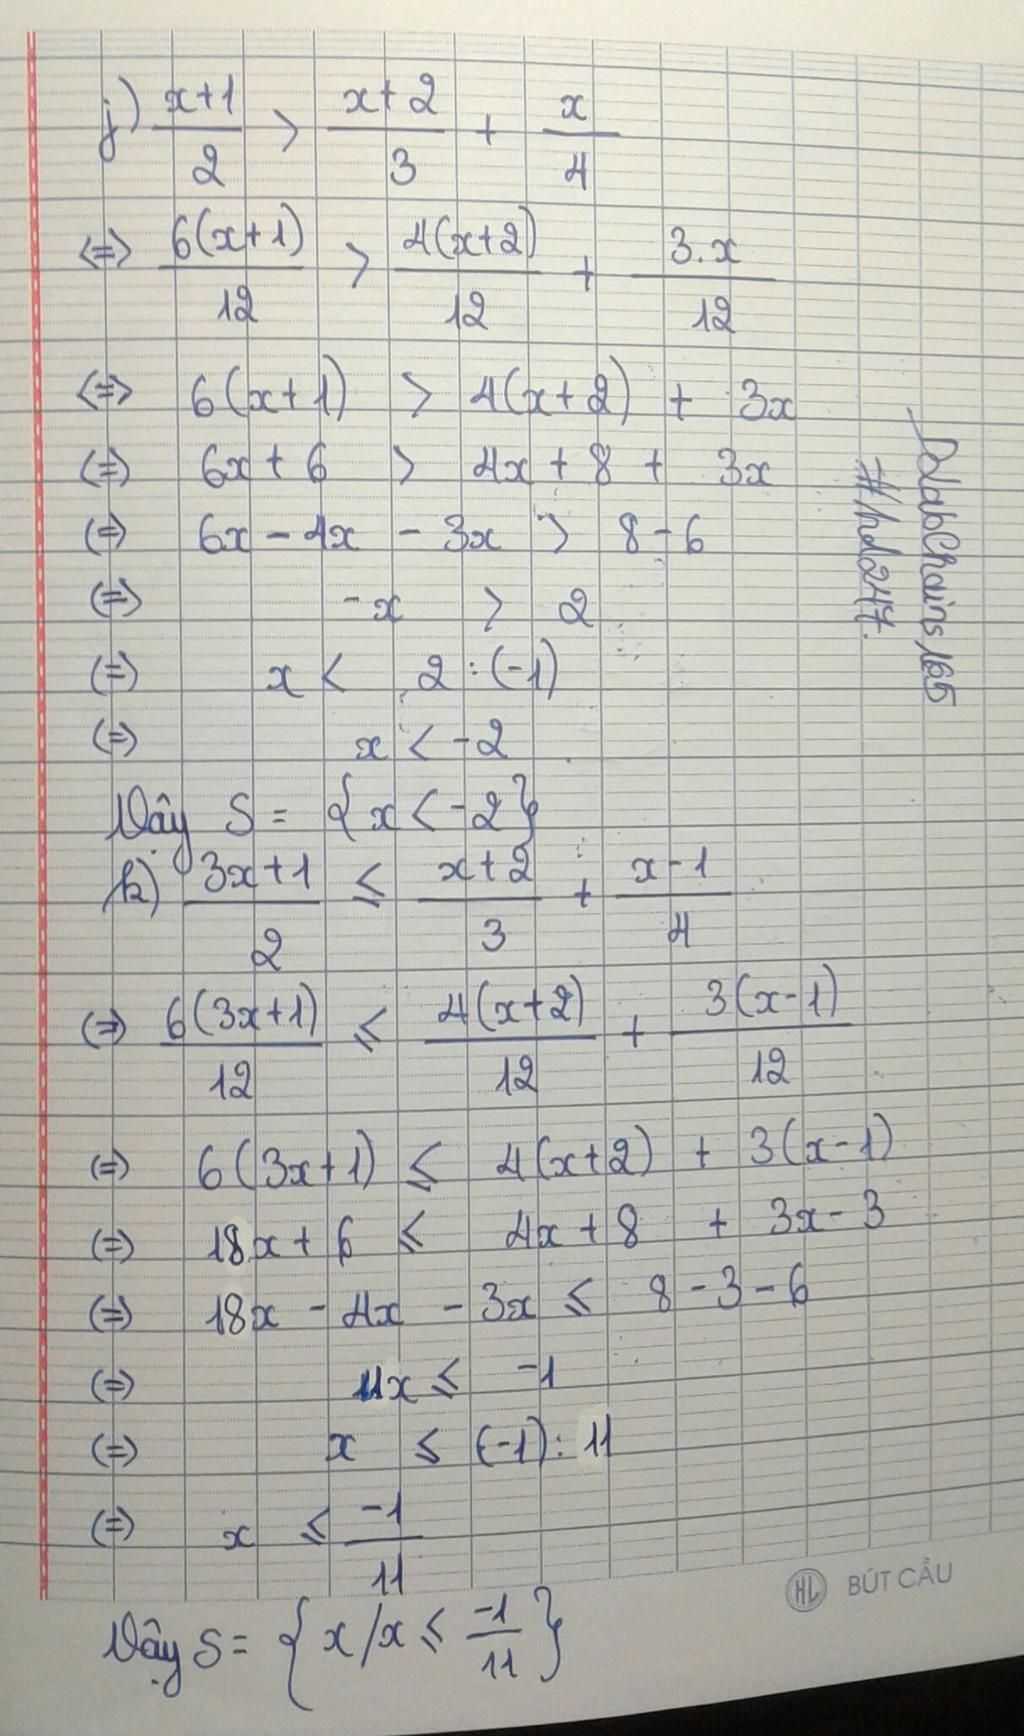 j) (x+1)/2 > (x+2)/3 + x/4
<=> 6(x+1)/12 > 4(x+2)/12 + 3.x/12
<=> 6(x+1) > 4(x+2) + 3x
(=) 6x + 6 > 4x + 8 + 3x
(=) 6x - 4x - 3x > 8 - 6
(=) -x > 2
(=) x < 2 : (-1)
(=) x < -2
Vậy S = {x < -2}
k) (3x+1)/2 ≤ (x+2)/3 + (x-1)/4
(=) 6(3x+1)/12 ≤ 4(x+2)/12 + 3(x-1)/12
(=) 6(3x+1) ≤ 4(x+2) + 3(x-1)
(=) 18x + 6 ≤ 4x + 8 + 3x - 3
(=) 18x - 4x - 3x ≤ 8 - 3 - 6
(=) 11x ≤ -1
(=) x ≤ (-1) : 11
(=) x ≤ -1/11
Vậy S = {x/x ≤ -1/11}
#hd247.
HL BÚT CẦU